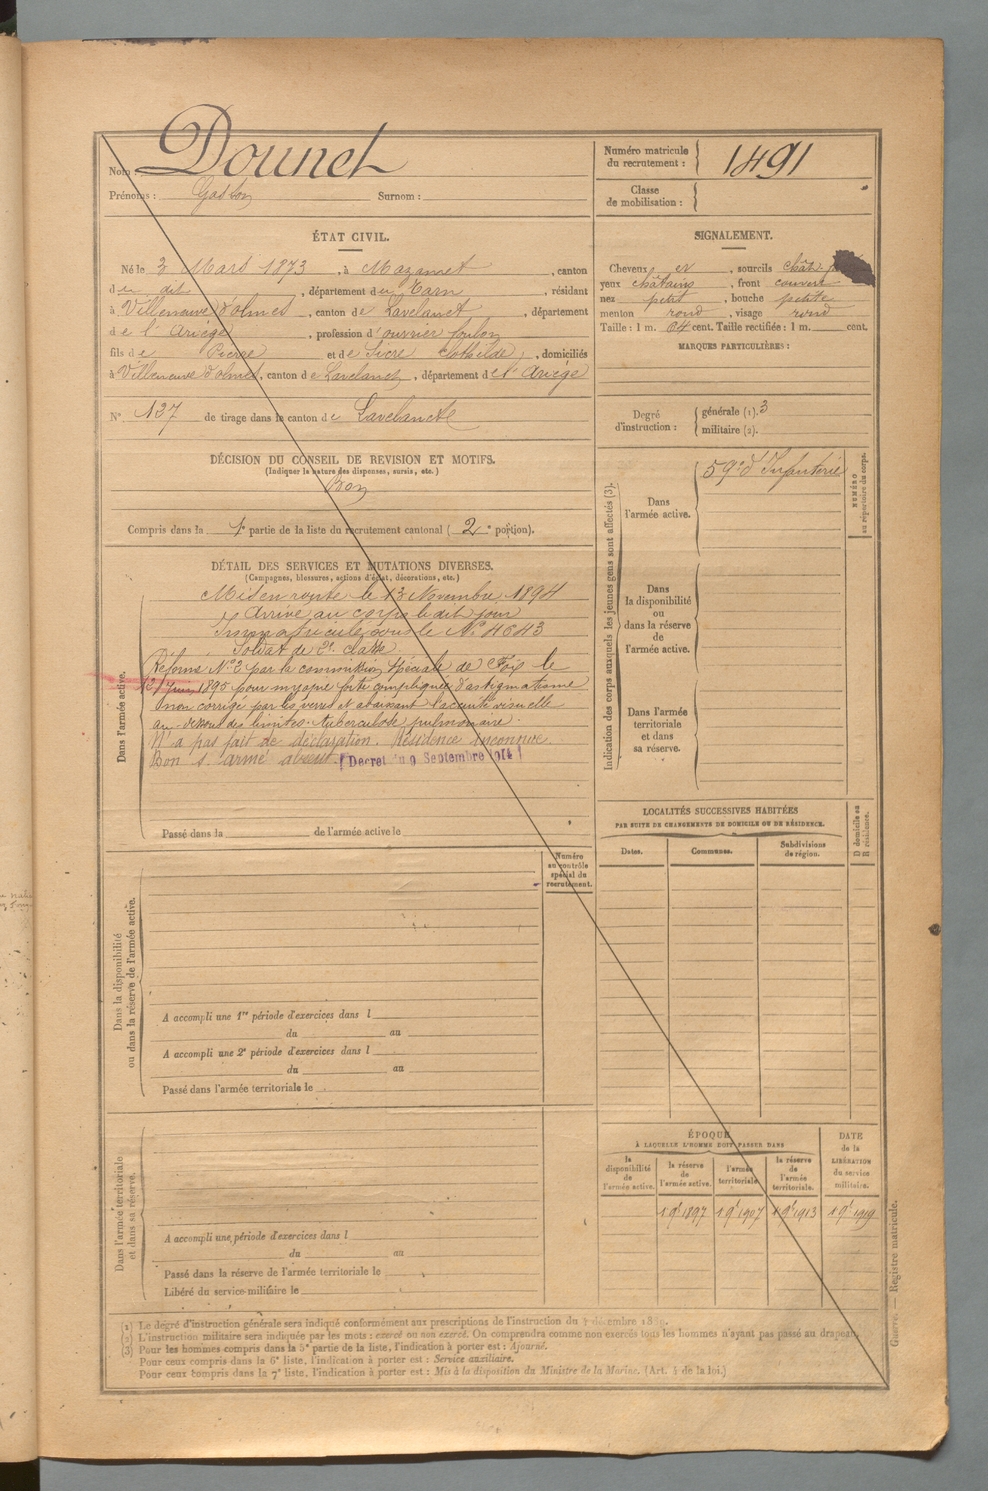 Nom : Dounet
Prénoms : Gaston Surnom :
Numéro matricule du recrutement : 1491
Classe de mobilisation :
ÉTAT CIVIL.
Né le 3 Mars 1873, à Mazamet, canton
du dit, département du Tarn, résidant
à Villeneuve d'olmes, canton de Lavelanet, département
de l'Ariège, profession d'ouvrier foulon
fils de Pierre et de Sicre Clothilde, domiciliés
à Villeneuve d'olmes, canton de Lavelanet, département de l'Ariège
N° 137 de tirage dans le canton de Lavelanet
DÉCISION DU CONSEIL DE REVISION ET MOTIFS.
(Indiquer la nature des dispenses, sursis, etc.)
Bon
Compris dans la 1e partie de la liste du recrutement cantonal (2e portion).
SIGNALEMENT.
Cheveux et, sourcils chât
yeux châtains, front couvert
nez petit, bouche petite
menton rond, visage rond
Taille : 1 m. 64 cent. Taille rectifiée : 1 m. cent.
MARQUES PARTICULIÈRES :
Degré d'instruction : générale (1). 3
militaire (2).
DÉTAIL DES SERVICES ET MUTATIONS DIVERSES.
(Campagnes, blessures, actions d'éclat, décorations, etc.)
Dans l'armée active.
Mis en route le 13 Novembre 1894
Arrivé au corps le dit jour
Immatriculé sous le N° 4643
Soldat de 2e classe
Réformé N° 2 par la commission spéciale de Foix le
12 Juin 1895 pour myopie forte compliquée d'astigmatisme
non corrigé par les verres et abaissant l'acuité visuelle
au-dessous des limites. tuberculose pulmonaire.
N'a pas fait de déclaration. Résidence inconnue
Bon s. armé absent. Decret du 9 Septembre 1914
Passé dans la de l'armée active le
Indication des corps auxquels les jeunes gens sont affectés (3).
NUMÉRO au répertoire du corps.
Dans l'armée active.
59e d'Infanterie
Dans la disponibilité ou dans la réserve de l'armée active.
Dans l'armée territoriale et dans sa réserve.
LOCALITÉS SUCCESSIVES HABITÉES
PAR SUITE DE CHANGEMENTS DE DOMICILE OU DE RÉSIDENCE.
Dates. Communes. Subdivisions de région. D domicile ou R résidence.
Numéro au contrôle spécial du recrutement.
Dans la disponibilité ou dans la réserve de l'armée active.
A accompli une 1re période d'exercices dans l
du au
A accompli une 2e période d'exercices dans l
du au
Passé dans l'armée territoriale le
Dans l'armée territoriale et dans sa réserve.
A accompli une période d'exercices dans l
du au
Passé dans la réserve de l'armée territoriale le
Libéré du service militaire le
ÉPOQUE
À LAQUELLE L'HOMME DOIT PASSER DANS
la disponibilité de l'armée active.
la réserve de l'armée active.
l'armée territoriale.
la réserve de l'armée territoriale.
DATE de la LIBÉRATION du service militaire.
1 9e 1897 1 9e 1907 1 9e 1913 1 9e 1919
Guerre. — Registre matricule.
(1) Le degré d'instruction générale sera indiqué conformément aux prescriptions de l'instruction du 4 décembre 1889.
(2) L'instruction militaire sera indiquée par les mots : exercé ou non exercé. On comprendra comme non exercés tous les hommes n'ayant pas passé au drapeau.
(3) Pour les hommes compris dans la 5e partie de la liste, l'indication à porter est : Ajourné.
Pour ceux compris dans la 6e liste, l'indication à porter est : Service auxiliaire.
Pour ceux compris dans la 7e liste, l'indication à porter est : Mis à la disposition du Ministre de la Marine. (Art. 4 de la loi.)